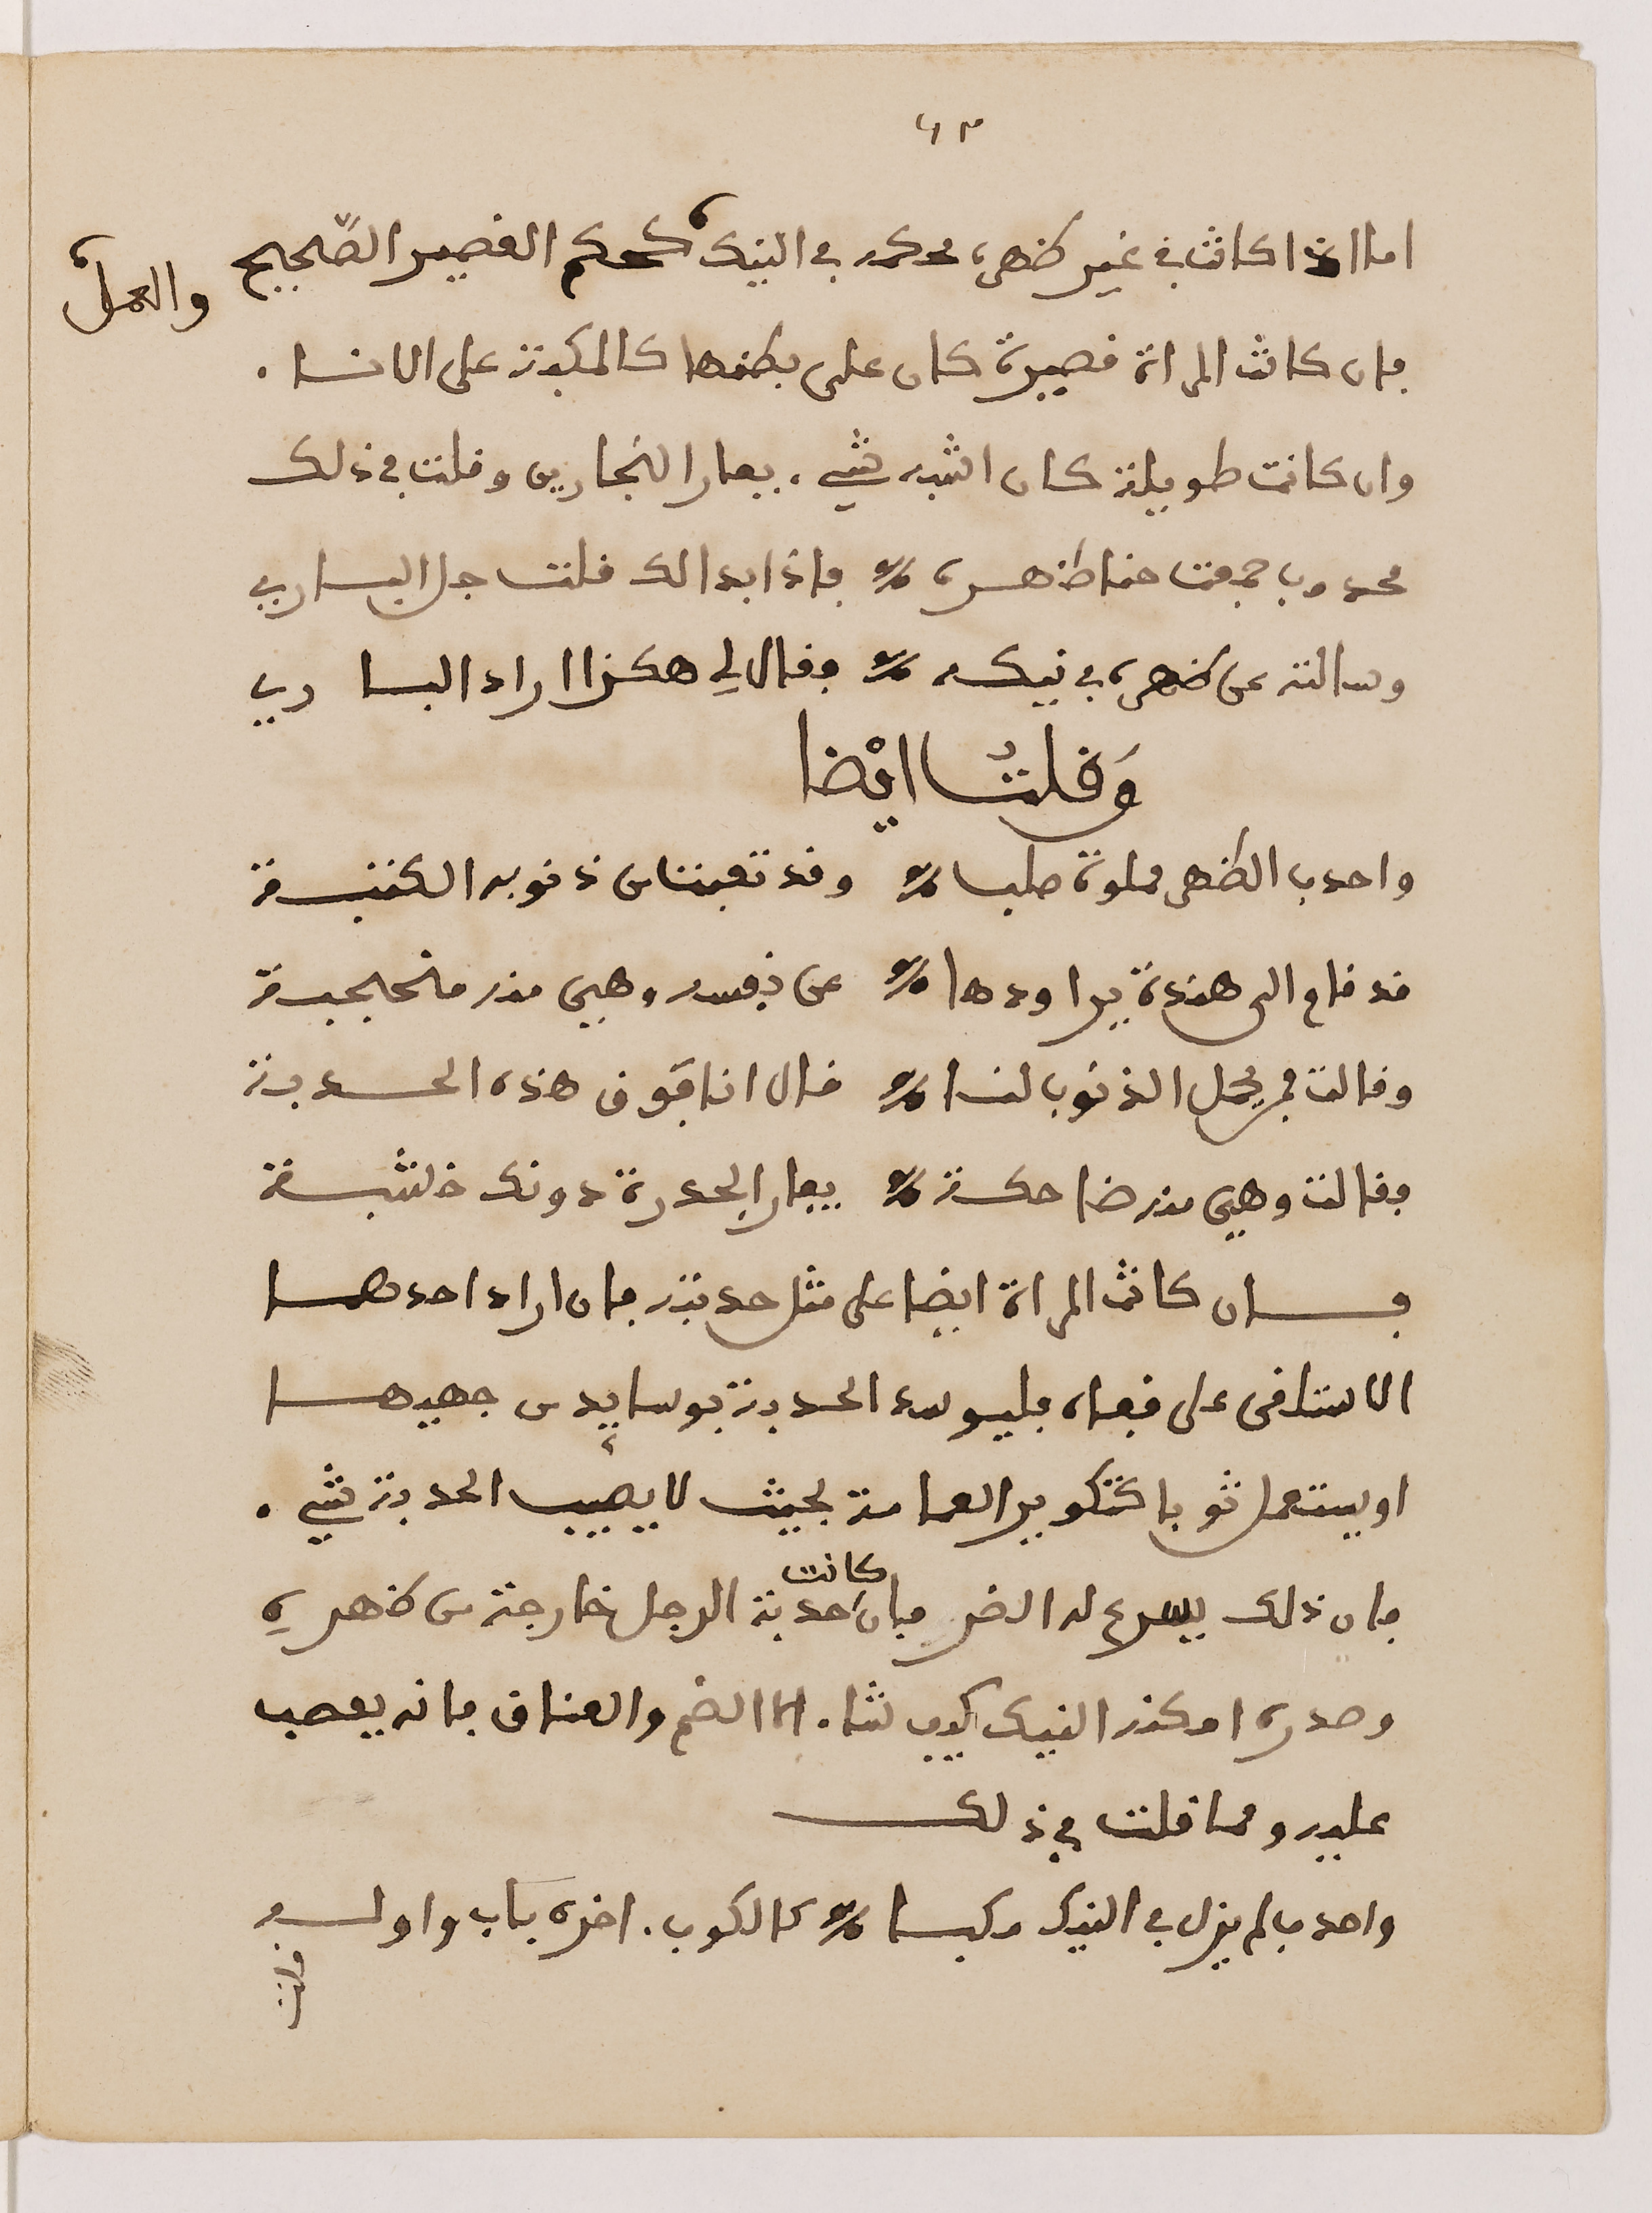 ٤٣
اما اذا كانت في غير ظهره فحكمه في النيك كحكم القصير الصّحيح والعمل
فان كانت المراة قصيرة كان على بطنها كالمكبة على الانا.
وان كانت طويلة كان اشبه شي. بفار النجارين وقلت في ذلك
محدوب جمعت حنا ظهره ٪ فاذا بدا لك قلت جل الباري
وسالته عن ظهره في نيكه ٪ فقال لي هكذا اراد الباري
وَقلتُ ايْضا
واحدب الظهر مملوة صلبا ٪ وقد تعبنا من ذنوبه الكتبة
قد قام الى هندة يراودها ٪ عن نفسه وهي منه متحجبة
وقالت فمن يحمل الذنوب لنا ٪ قال انا فوق هذه الحدبة
فقالت وهي منه ضاحكة ٪ بيا الحدرة دونك خلشبة
فان كانت المراة ايضا على مثل حدبته فان اراد احدهما
الاستلقى على قفاه فليوسد الحدبة بوسايد من جهيها
او يستعمل ثوبا كتكوير العمامة بحيث لا يصيب الحدبة شي.
فان ذلك يسرع له الضر فان كانت حدبة الرجل خارجة من ظهره
وصدره امكنه النيك كيف شا. اما الضم والعناق فانه يصعب
عليه ومما قلت في ذلك
واحدب لم يزل في النيك مركبا ٪ كالكوب. اخره باب واوله
قلت